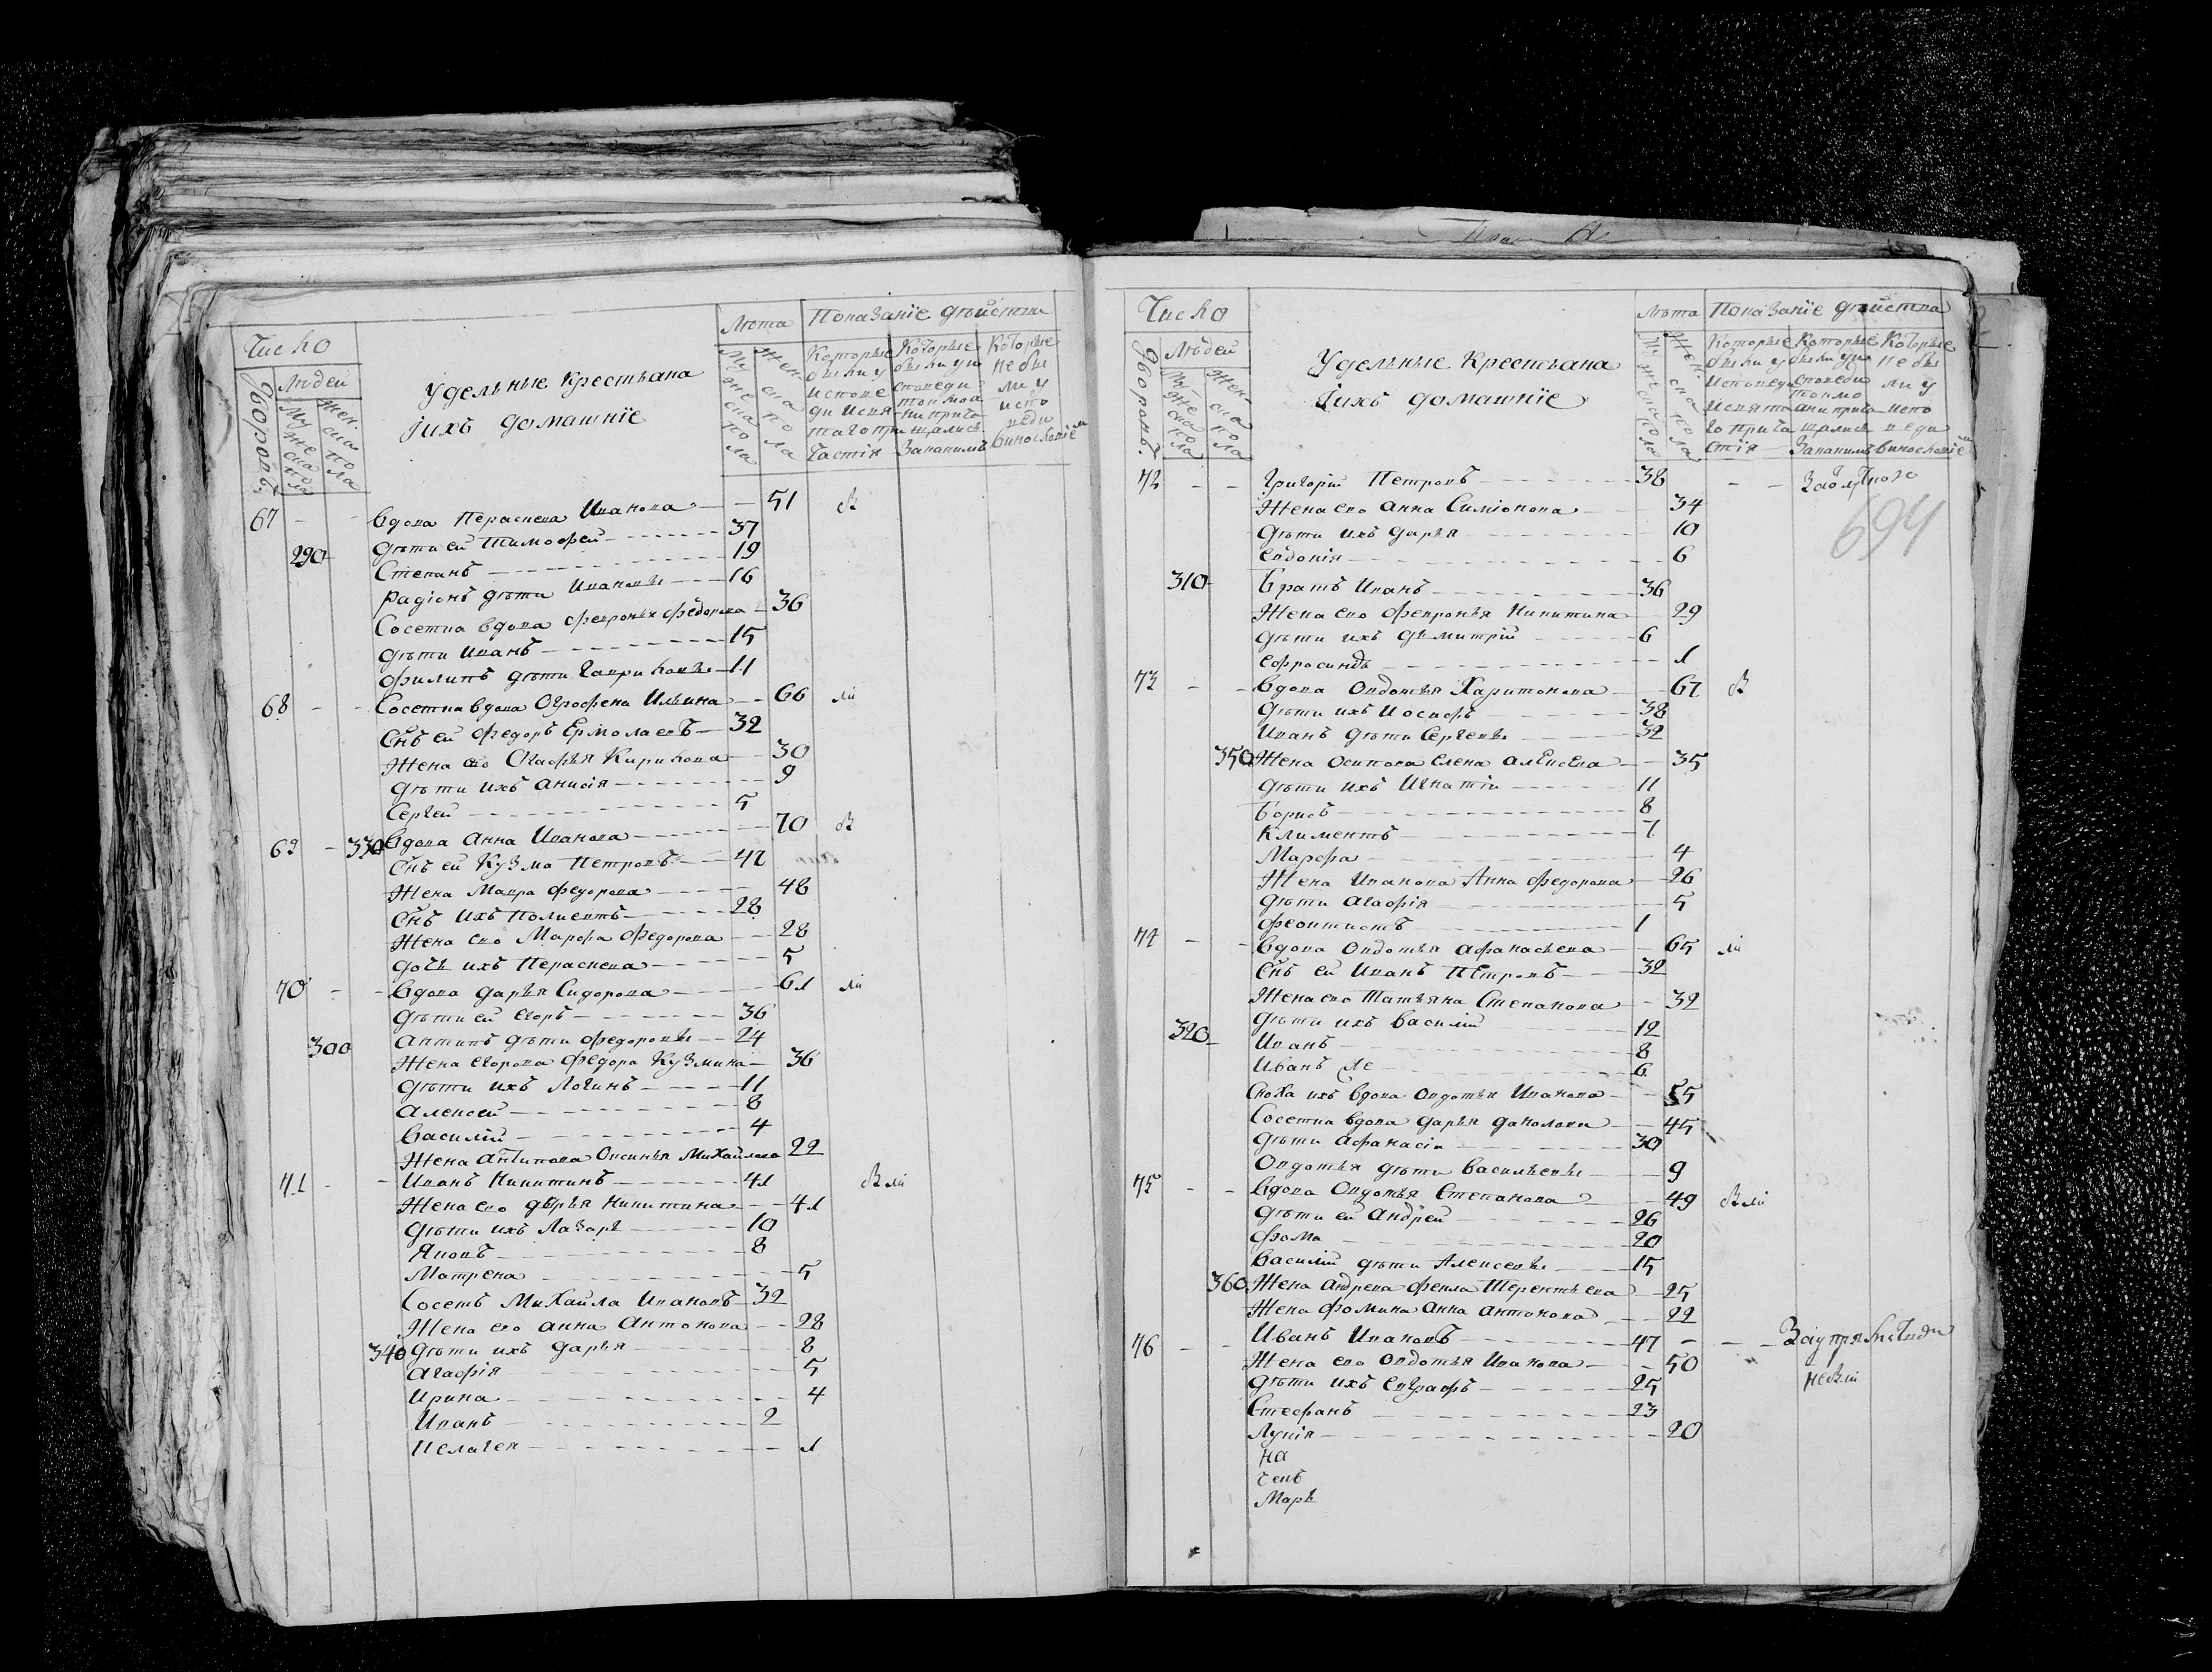 Число
Людей
дворовъ
Мужеска пола
Женска пола
Удельные крестьяна
Iихъ домашнїе
Лѣта
Мужеска пола
Женска пола
Показанїе дѣйства
Которые были у исповеди и святаго причастiя
Которые были у исповеди токмо а непричащались
Которые не были у исповеди
67 вдова Параскева Иванова 51
дѣти ей Тимофей 37
290 Степанъ 19
Радiонъ дѣти Ивановы 16
Соседка вдова Февронья Федорова 36
дѣти Иванъ 15
Филипъ дѣти Гавриловы 11
68 Соседка вдова Огрофена Ильина 66
Снъ ей Федоръ Ермолаевъ 32
Жена его Огафья Кирилова 30
дѣти ихъ Анисiя 9
Сергей 5
69 330 Вдова Анна Иванова 70
Снъ ей Кузма Петровъ 47
Жена Мавра Федорова 48
Снъ ихъ Полиектъ 28
Жена его Марфа Федорова 28
дочь ихъ Параскева 5
70 вдова Дарья Сидорова 61
дѣти ей Егоръ 36
300 Антипъ дѣти Федоровы 24
Жена Егорова Федора Кузмина 36
дѣти ихъ Логинъ 11
Алексей 8
Василiй 4
Жена Антипова Оксинья Михайлова 22
71 Иванъ Никитинъ 41
Жена его Дарья Никитина 41
дѣти ихъ Лазарь 10
Яковъ 8
Матрена 5
Соседъ Михайла Ивановъ 32
Жена его Анна Антонова 28
340 дѣти ихъ Дарья 8
Агафiя 5
Ирина 4
Иванъ 2
Пелагея 1
Число
Людей
дворовъ
Мужеска пола
Женска пола
Удельные крестьяна
Iихъ домашнїе
Лѣта
Мужеска пола
Женска пола
Показанїе дѣйства
Которые были у исповеди и святаго причастiя
Которые были у исповеди токмо а непричащались
Которые не были у исповеди
72 Григорiй Петровъ 38
Жена его Анна Симiонова 34
694
дѣти ихъ Дарья 10
Евдокiя 6
310 Братъ Иванъ 36
Жена его Февронья Никитина 29
дѣти ихъ Димитрiй 6
Ефросинья 1
73 вдова Овдотья Харитонова 67
дѣти ихъ Иосифъ 38
Иванъ дѣти Сергеевы 32
350 Жена Осипова Елена Алексеева 35
дѣти ихъ Игнатiй 11
Борисъ 8
Климентъ 7
Марфа 4
Жена Иванова Анна Федорова 26
дѣти Агафiя 5
Феоктистъ 1
74 вдова Овдотья Афанасьева 65
Снъ ей Иванъ Петровъ 32
Жена его Татьяна Степанова 32
дѣти ихъ Василiй 12
320 Иванъ 8
Иванъ же 6
Сноха ихъ вдова Овдотья Иванова 55
Соседка вдова Дарья 45
дѣти Афанасiй 30
Овдотья дѣти Васильевы 9
75 вдова Овдотья Степанова 49
дѣти ей Андрей 26
Фома 20
Василiй дѣти Алексеевы 15
360 Жена Андреева Фекла Терентьева 25
Жена Фомина Анна Антонова 22
76 Иванъ Ивановъ 47
Жена его Овдотья Иванова 50
дѣти ихъ Евграфъ 25
Стефанъ 23
Лукiя 20
на
Марь